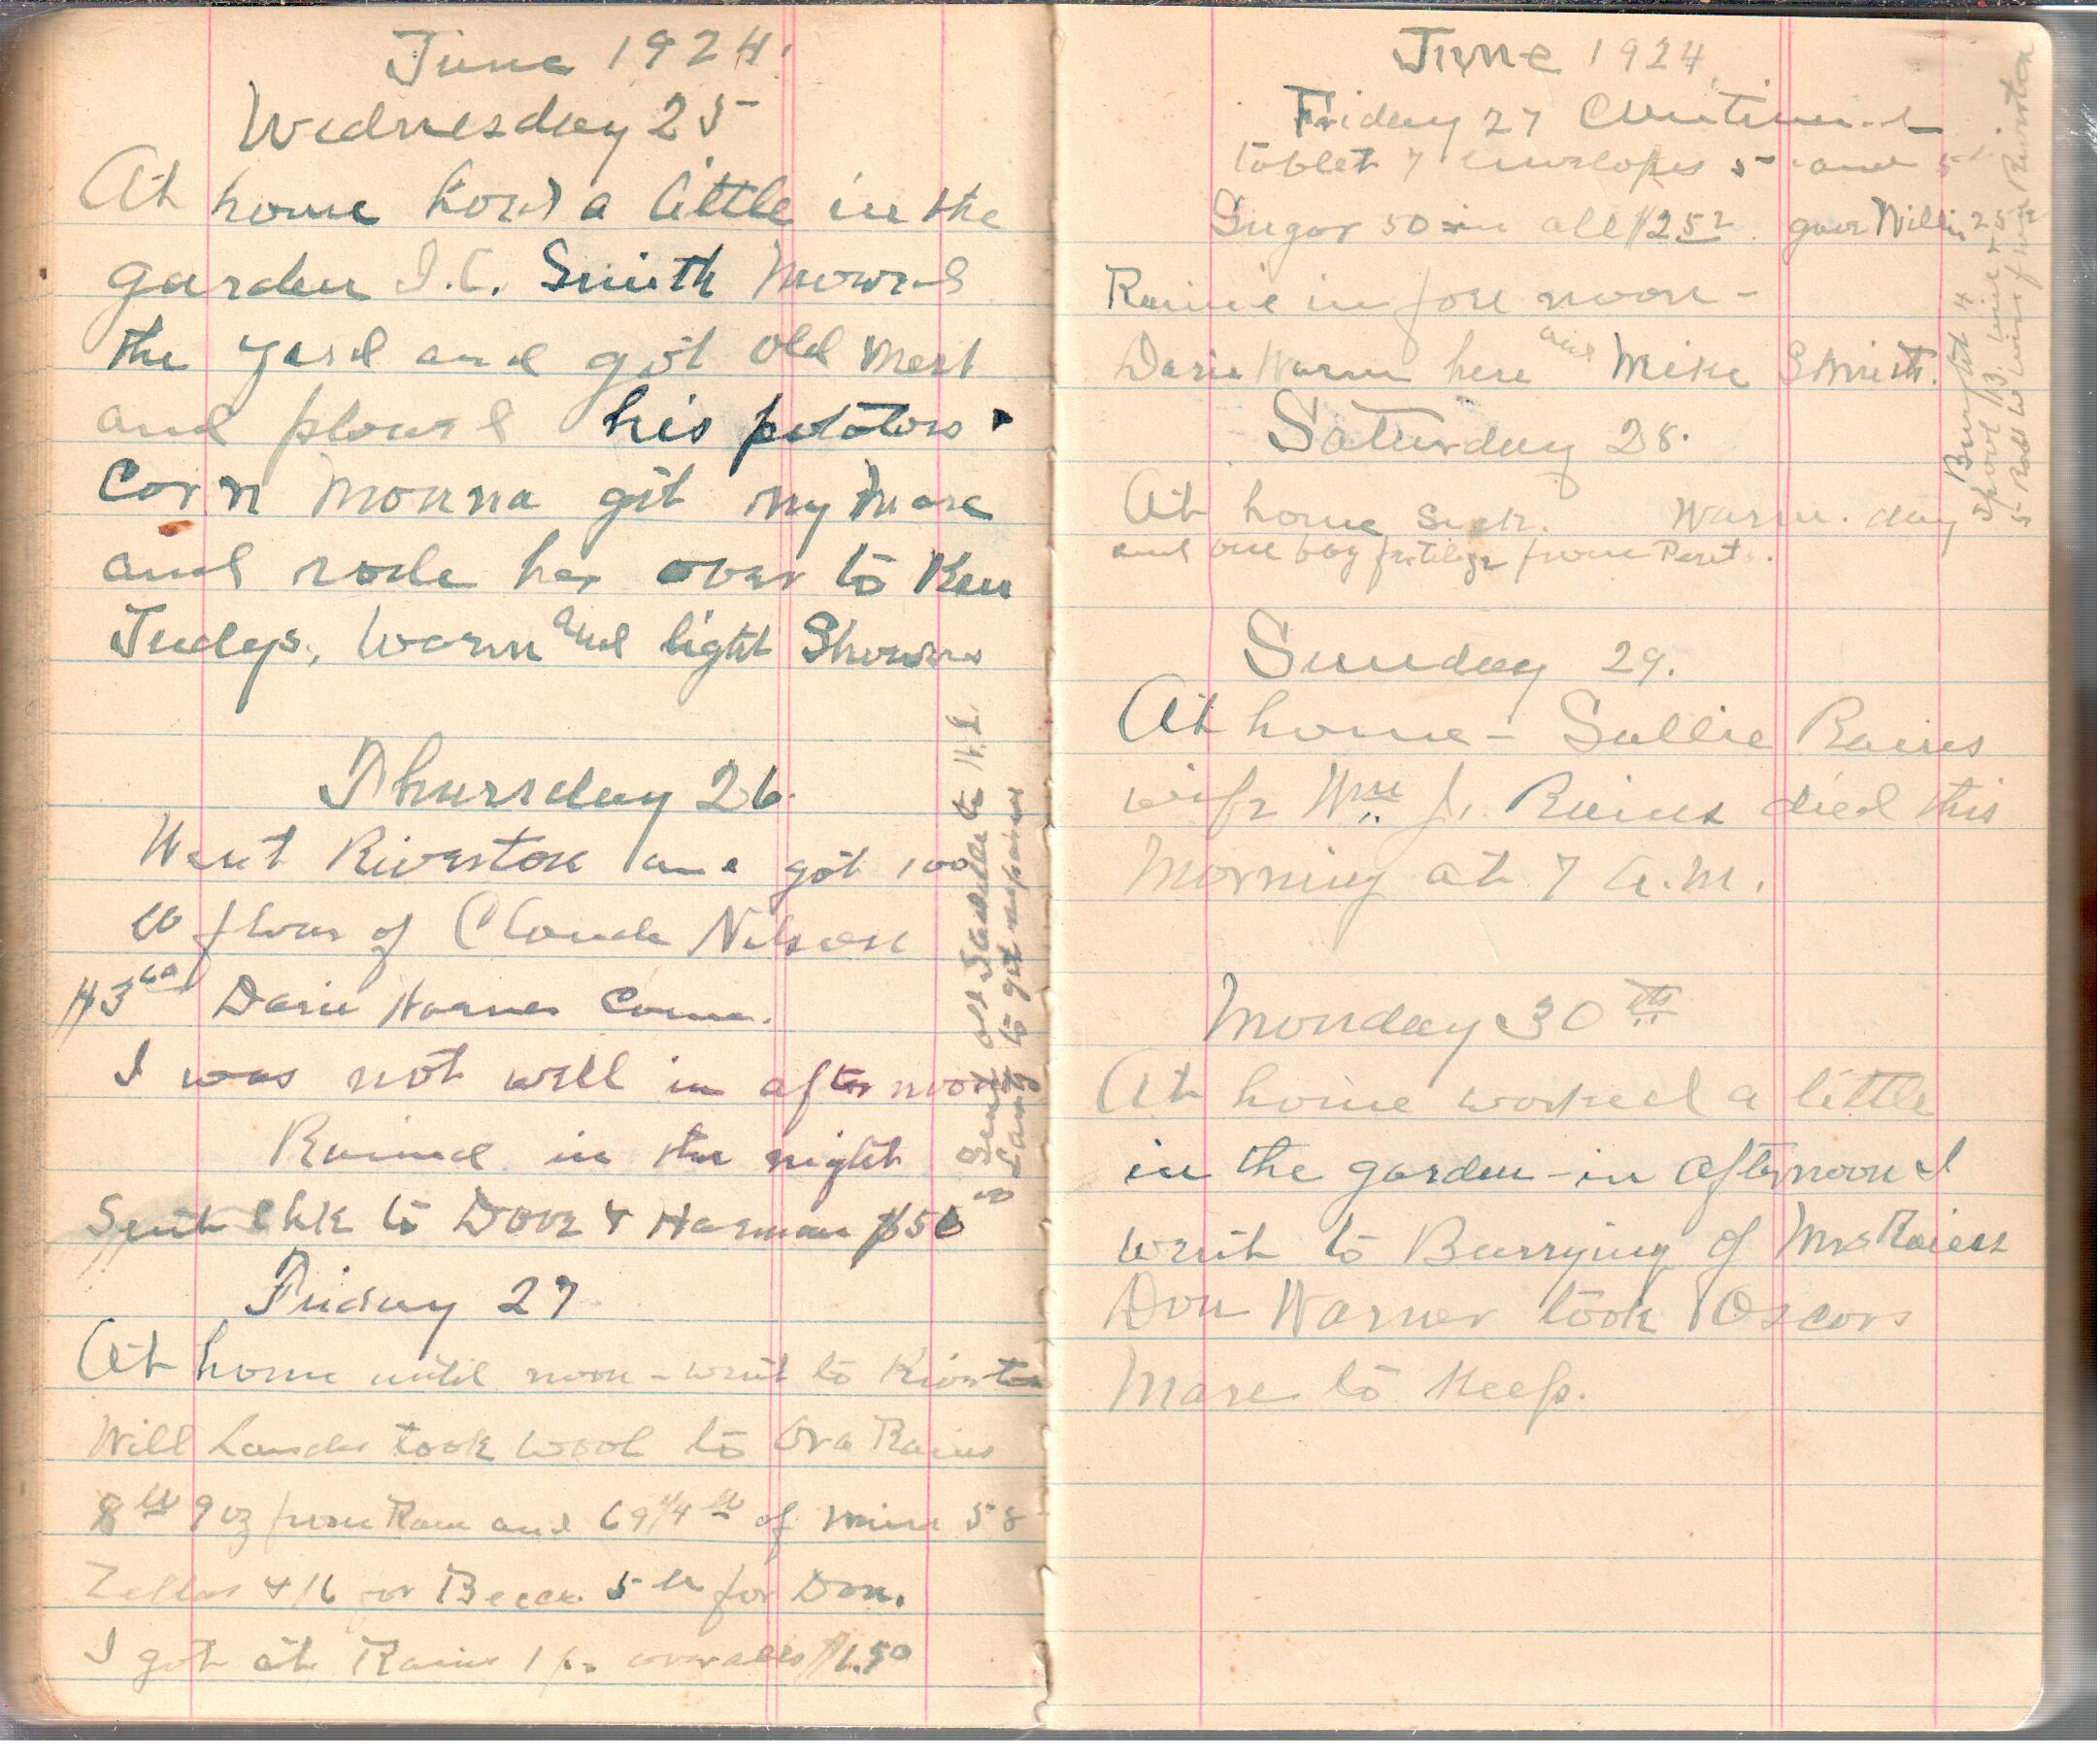 June 1924.
Wednesday 25
At home hoed a little in the
garden I.C. Smith Mowed
the yard and got old Mert
and plowed his potatoes
Corn Monna got my Mare
and rode her over to Ken
Judys, Warm and light Showers
Thursday 26
Went Riverton and got 100
lb flour of Claude Nelson
$3 60 Dasie Warner Come.
I was not well in afternoon
Rained in the night
Sent Chk to Dove & Harman $50 00
Sent old Saddle to H.L.
Lantz to get repaired
Friday 27
At home until noon - went to Riverton
Will Landes took wool to Ora Rains
8 lb 9 oz from Ram and 69 1/4 lb of mine 58
Zellas & 16 for Becca 5 lb for Don.
I got at Rains 1 pr overalls $1.50
June 1924.
Friday 27 Continued
tablet 7 envelopes 5 and
Sugar 50 in all $2 52 gave Willis 25
Raine in fore noon -
Dasie Warner here and Mike Smith.
Saturday 28.
At home Sick. Warm. day
and one bag fertilizer from
Brought 4
Spool B. wire &
5 Roll W wire from Riverton
Sunday 29.
At home - Sallie Raines
wife Wm J. Raines died this
Morning at 7 A.M.
Monday 30th
At home worked a little
in the garden - in afternoon I
went to Burrying of Mrs Raines
Don Warner took Oscars
Mare to Keep.